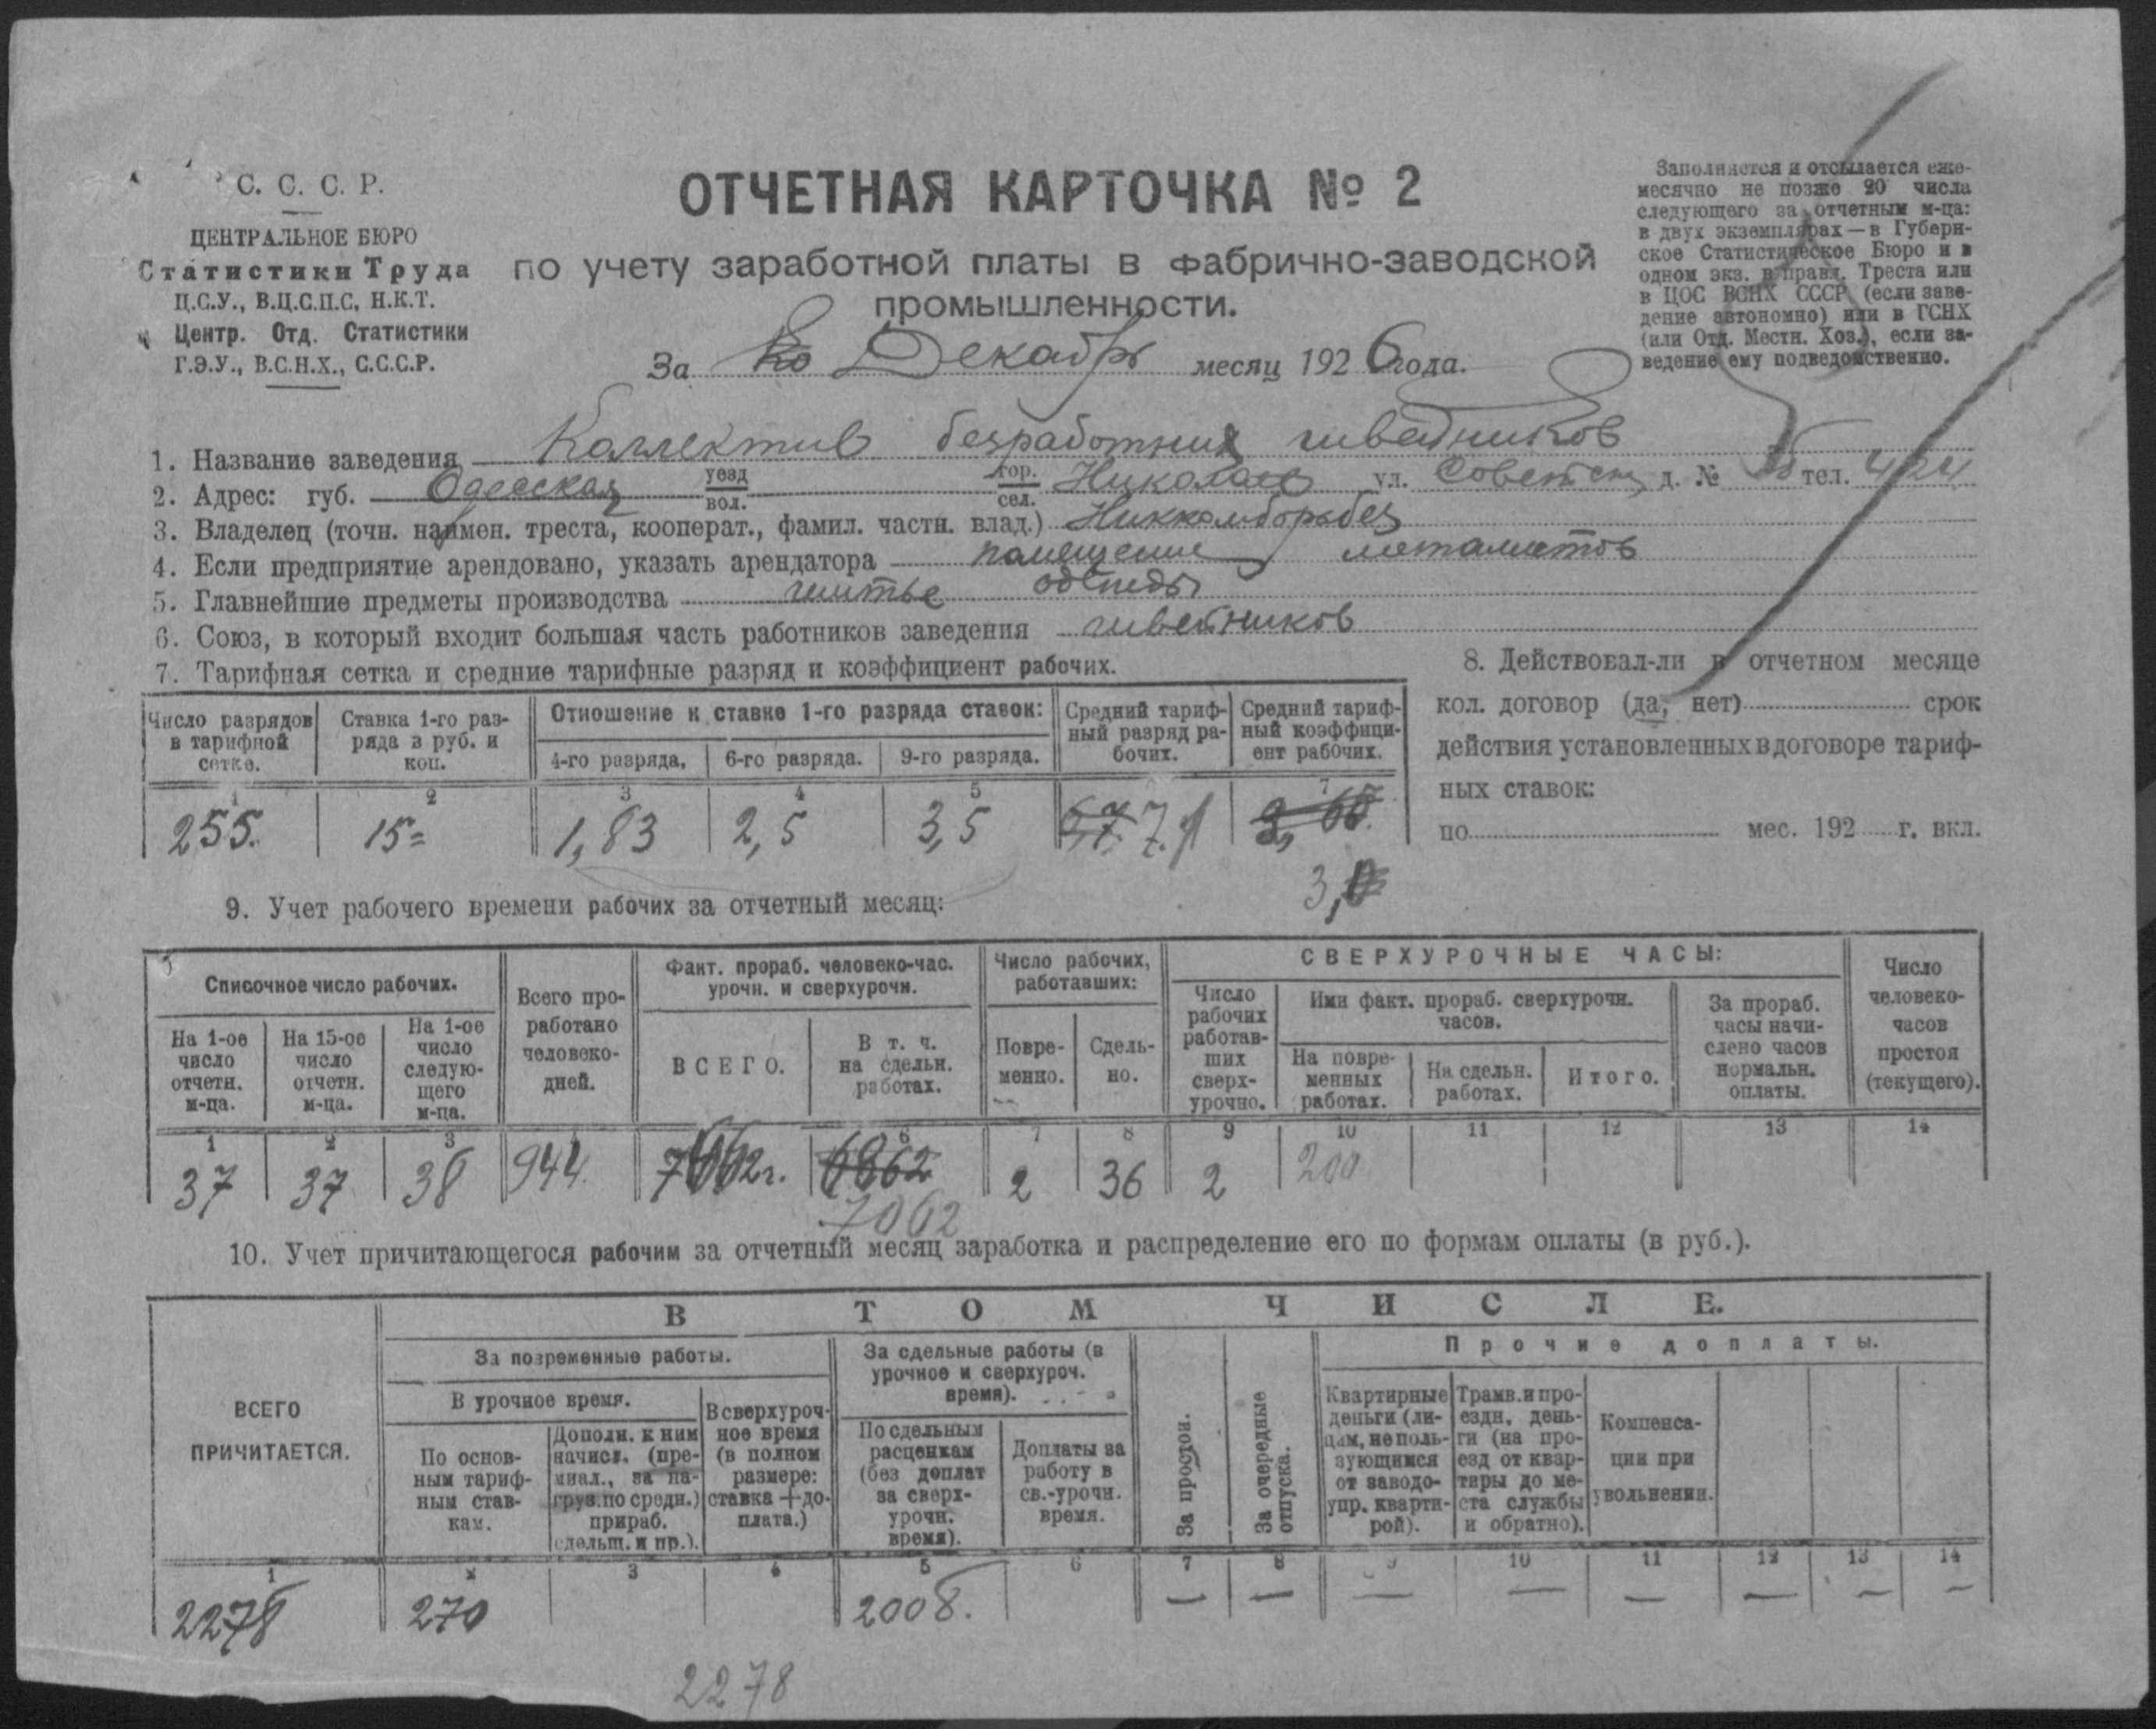 С. С. С. Р.
ЦЕНТРАЛЬНОЕ БЮРО
Статистики Труда
Ц.С.У., В.Ц.С.П.С, Н.К.Т.
Центр. Отд. Статистики
Г.Э.У., В.С.Н.Х., С.С.С.Р.
ОТЧЕТНАЯ КАРТОЧКА № 2
по учету заработной платы в фабрично-заводской
промышленности.
За Декабрь месяц 1926 года.
Заполняется и отсылается еже-
месячно не позже 20 числа
следующего за отчетным м-ца:
в двух экземплярах — в Губерн-
ское Статистическое Бюро и в
одном экз. в правл. Треста или
в ЦОС ВСНХ СССР (если заве-
дение автономно) или в ГСНХ
(или Отд. Местн. Хоз.), если за-
ведение ему подведомственно.
1. Название заведения Коллектив безработных швейников
2. Адрес: губ. Одесская уезд вол. гор. сел. Николаев ул. Советск д. № тел. 424
3. Владелец (точн. наимен. треста, кооперат., фамил. частн. влад.) Никкомборьбез
4. Если предприятие арендовано, указать арендатора помещение металистов
5. Главнейшие предметы производства шитье одежды
6. Союз, в который входит большая часть работников заведения швейников
7. Тарифная сетка и средние тарифные разряд и коэффициент рабочих.
Число разрядов в тарифной сетке.
Ставка 1-го раз-ряда в руб. и коп.
Отношение к ставке 1-го разряда ставок:
4-го разряда.
6-го разряда.
9-го разряда.
Средний тариф-ный разряд ра-бочих.
Средний тариф-ный коэффици-ент рабочих.
1 2 3 4 5 7
255. 15= 1,83 2,5 3,5 6,7 7.1 3,65
3,0
8. Действовал-ли в отчетном месяце
кол. договор (да, нет) срок
действия установленных в договоре тариф-
ных ставок:
по мес. 192 г. вкл.
9. Учет рабочего времени рабочих за отчетный месяц:
Списочное число рабочих.
На 1-ое число отчетн. м-ца.
На 15-ое число отчетн. м-ца.
На 1-ое число следую-щего м-ца.
Всего про-работано человеко-дней.
Факт. прораб. человеко-час. урочн. и сверхурочн.
ВСЕГО.
В т. ч. на сдельн. работах.
Число рабочих, работавших:
Повре-менно.
Сдель-но.
СВЕРХУРОЧНЫЕ ЧАСЫ:
Число рабочих работав-ших сверх-урочно.
Ими факт. прораб. сверхурочн. часов.
На повре-менных работах.
На сдельн. работах.
Итого.
За прораб. часы начи-слено часов нормальн. оплаты.
Число человеко-часов простоя (текущего).
1 2 3 6 7 8 9 10 11 12 13 14
37 37 38 944. 6862 2 36 2 200
7062
10. Учет причитающегося рабочим за отчетный месяц заработка и распределение его по формам оплаты (в руб.).
ВСЕГО ПРИЧИТАЕТСЯ.
В ТОМ ЧИСЛЕ.
За повременные работы.
В урочное время.
По основ-ным тариф-ным став-кам.
Дополн. к ним начисл. (пре-миал., за на-груз. по средн.) прираб. сдельщ. и пр.).
В сверхуроч-ное время (в полном размере: ставка + до-плата.)
За сдельные работы (в урочное и сверхуроч. время).
По сдельным расценкам (без доплат за сверх-урочн. время).
Доплаты за работу в св.-урочн. время.
За простои.
За очередные отпуска.
Прочие доплаты.
Квартирные деньги (ли-цам, не поль-зующимся от заводо-упр. кварти-рой).
Трамв. и про-ездн. день-ги (на про-езд от квар-тиры до ме-ста службы и обратно).
Компенса-ции при увольнении.
1 2 3 4 5 6 7 8 9 10 11 12 13 14
2278 270 2008. — — — — — — — —
2278